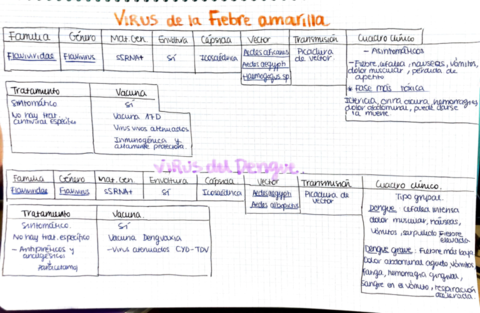 VIRUS de la Fiebre amarilla
Familia Género Mat. Gen. Envoltura Cápside Vector Transmisión Cuadro clínico
Flaviviridae Flavivirus SSRNA+ Sí Icosaédrica Aedes africanus Picadura de vector
Aedes aegypti
Haemagogus sp
- Asintomáticos
- Fiebre, cefalea, náuseas, vómitos,
dolor muscular, pérdida de
apetito
* FASE más tóxica
Ictericia, orina oscura, hemorragias,
dolor abdominal, puede darse
la muerte
Tratamiento Vacuna
Sintomático Sí
No hay trat. Vacuna 17D
antiviral específico Virus vivos atenuados
Inmunogénica y
altamente protectora
Virus del Dengue
Familia Género Mat. Gen. Envoltura Cápside Vector Transmisión Cuadro clínico.
Flaviviridae Flavivirus SSRNA+ Sí Icosaédrica Aedes aegypti Picadura de
Aedes albopictus vector
Tipo gripal
Dengue: cefalea intensa
dolor muscular, náuseas,
vómitos, sarpullido Fiebre
elevada
Dengue grave: Fiebre más baja
Dolor abdominal agudo, vómitos
fatiga, hemorragia gingival,
sangre en el vómito, respiración
acelerada
Tratamiento Vacuna.
Sintomático. Sí
No hay trat. específico Vacuna Dengvaxia
- Antipiréticos y - Virus atenuados CYD-TDV
analgésicos
Paracetamol